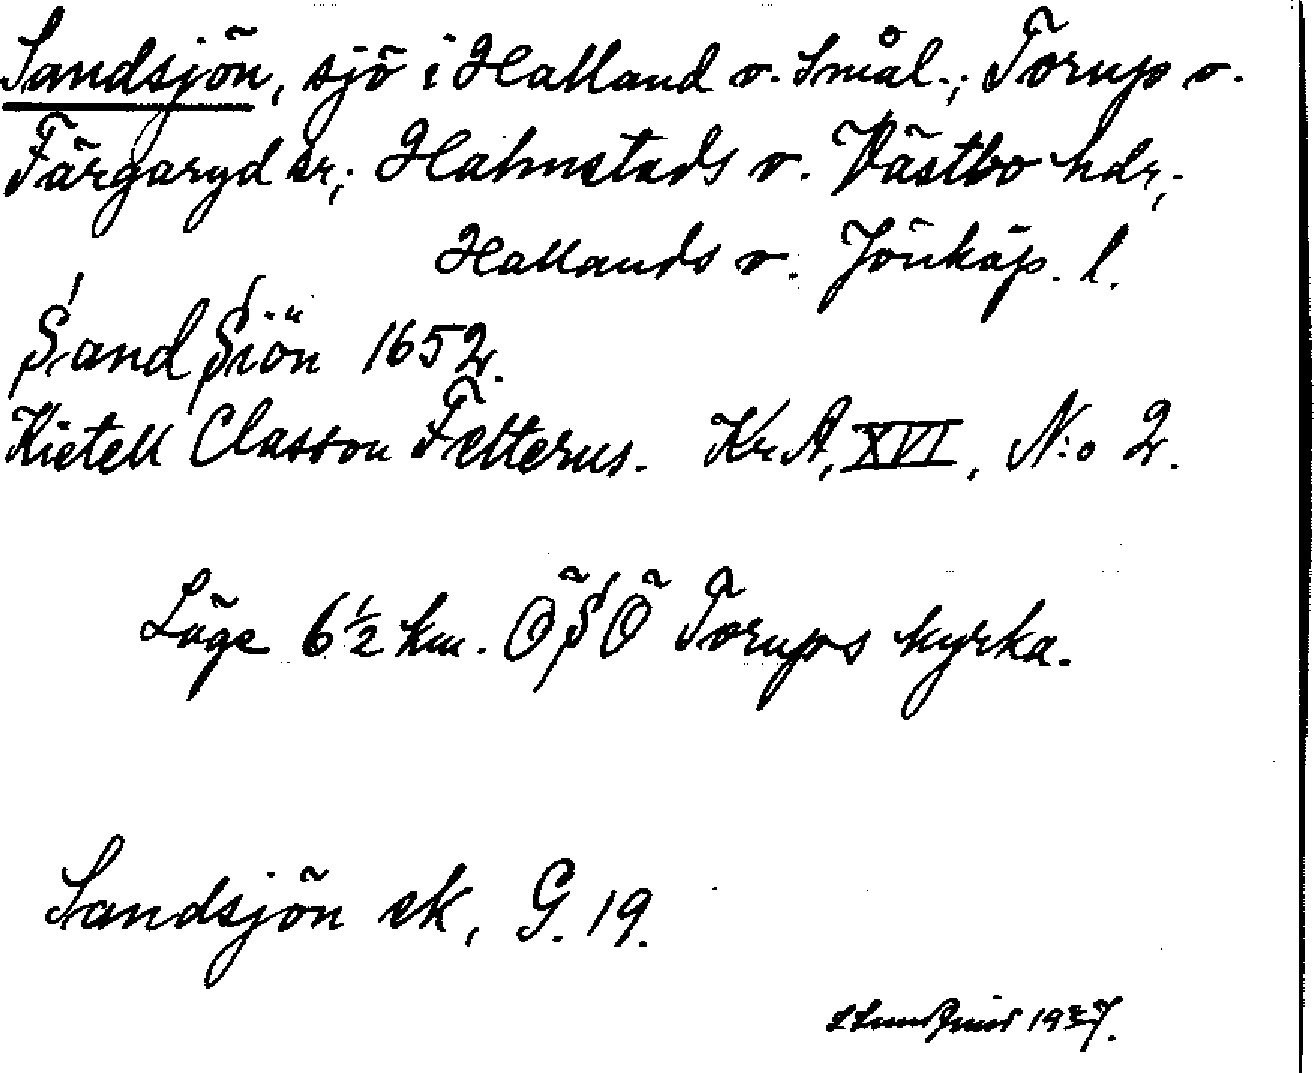 Sandsjön, sjö i Halland o. Smål.; Torup o.
Färgaryd sr; Halmstads o. Västbo hdr;
Hallands o. Jönköp. l.
Sand Siön 1652.
Kietell Classon Felterus. KrA, XVI, N:o 2.
Läge 6 1/2 km. ÖSÖ Torups kyrka.
Sandsjön ek, G. 19.
1937.